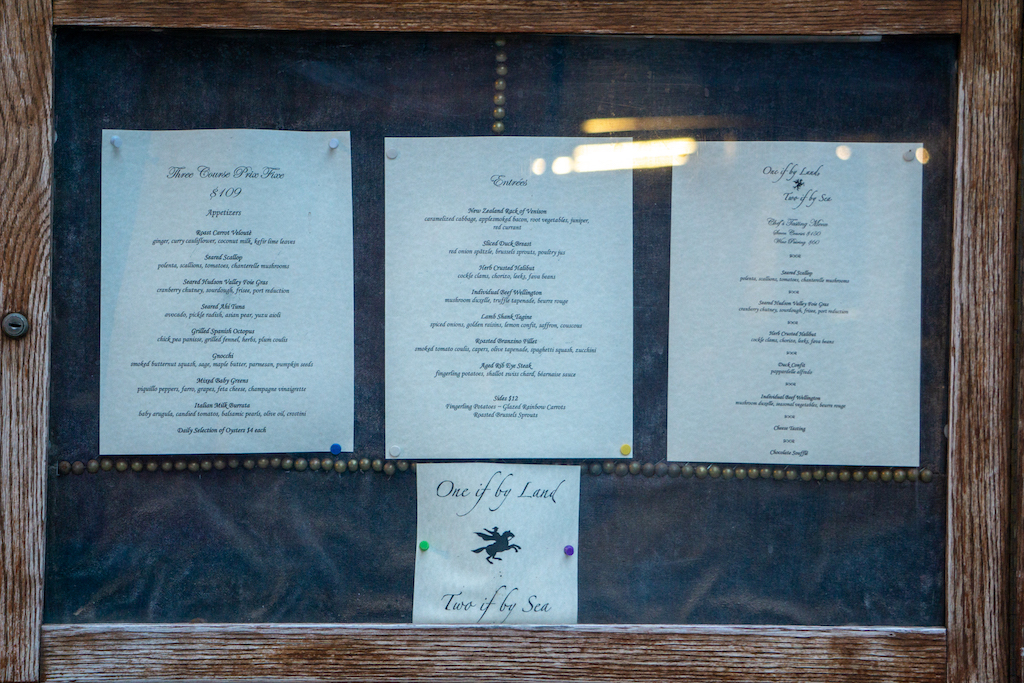 Three Course Prix Fixe
$109
Appetizers
Roast Carrot Velouté
ginger, curry cauliflower, coconut milk, kefir lime leaves
Seared Scallop
polenta, scallions, tomatoes, chanterelle mushrooms
Seared Hudson Valley Foie Gras
cranberry chutney, sourdough, frisee, port reduction
Seared Ahi Tuna
avocado, pickle radish, asian pear, yuzu aioli
Grilled Spanish Octopus
chick pea panisse, grilled fennel, herbs, plum coulis
Gnocchi
smoked butternut squash, sage, maple butter, parmesan, pumpkin seeds
Mixed Baby Greens
piquillo peppers, farro, grapes, feta cheese, champagne vinaigrette
Italian Milk Burrata
baby arugula, candied tomatoes, balsamic pearls, olive oil, crostini
Daily Selection of Oysters $4 each
Entrées
New Zealand Rack of Venison
caramelized cabbage, applesmoked bacon, root vegetables, juniper,
red currant
Sliced Duck Breast
red onion spätzle, brussels sprouts, poultry jus
Herb Crusted Halibut
cockle clams, chorizo, leeks, fava beans
Individual Beef Wellington
mushroom duxelle, truffle tapenade, beurre rouge
Lamb Shank Tagine
spiced onions, golden raisins, lemon confit, saffron, couscous
Roasted Branzino Fillet
smoked tomato coulis, capers, olive tapenade, spaghetti squash, zucchini
Aged Rib Eye Steak
fingerling potatoes, shallot swiss chard, béarnaise sauce
Sides $12
Fingerling Potatoes ~ Glazed Rainbow Carrots
Roasted Brussels Sprouts
One if by Land
Two if by Sea
Chef's Tasting Menu
Seven Course $150
Wine Pairing
Seared Scallop
polenta, scallions, tomatoes, chanterelle mushrooms
Seared Hudson Valley Foie Gras
cranberry chutney, sourdough, frisee, port reduction
Herb Crusted Halibut
cockle clams, chorizo, leeks, fava beans
Duck Confit
pappardelle alfredo
Individual Beef Wellington
mushroom duxelle, seasonal vegetables, beurre rouge
Cheese Tasting
Chocolate Soufflé
One if by Land
Two if by Sea